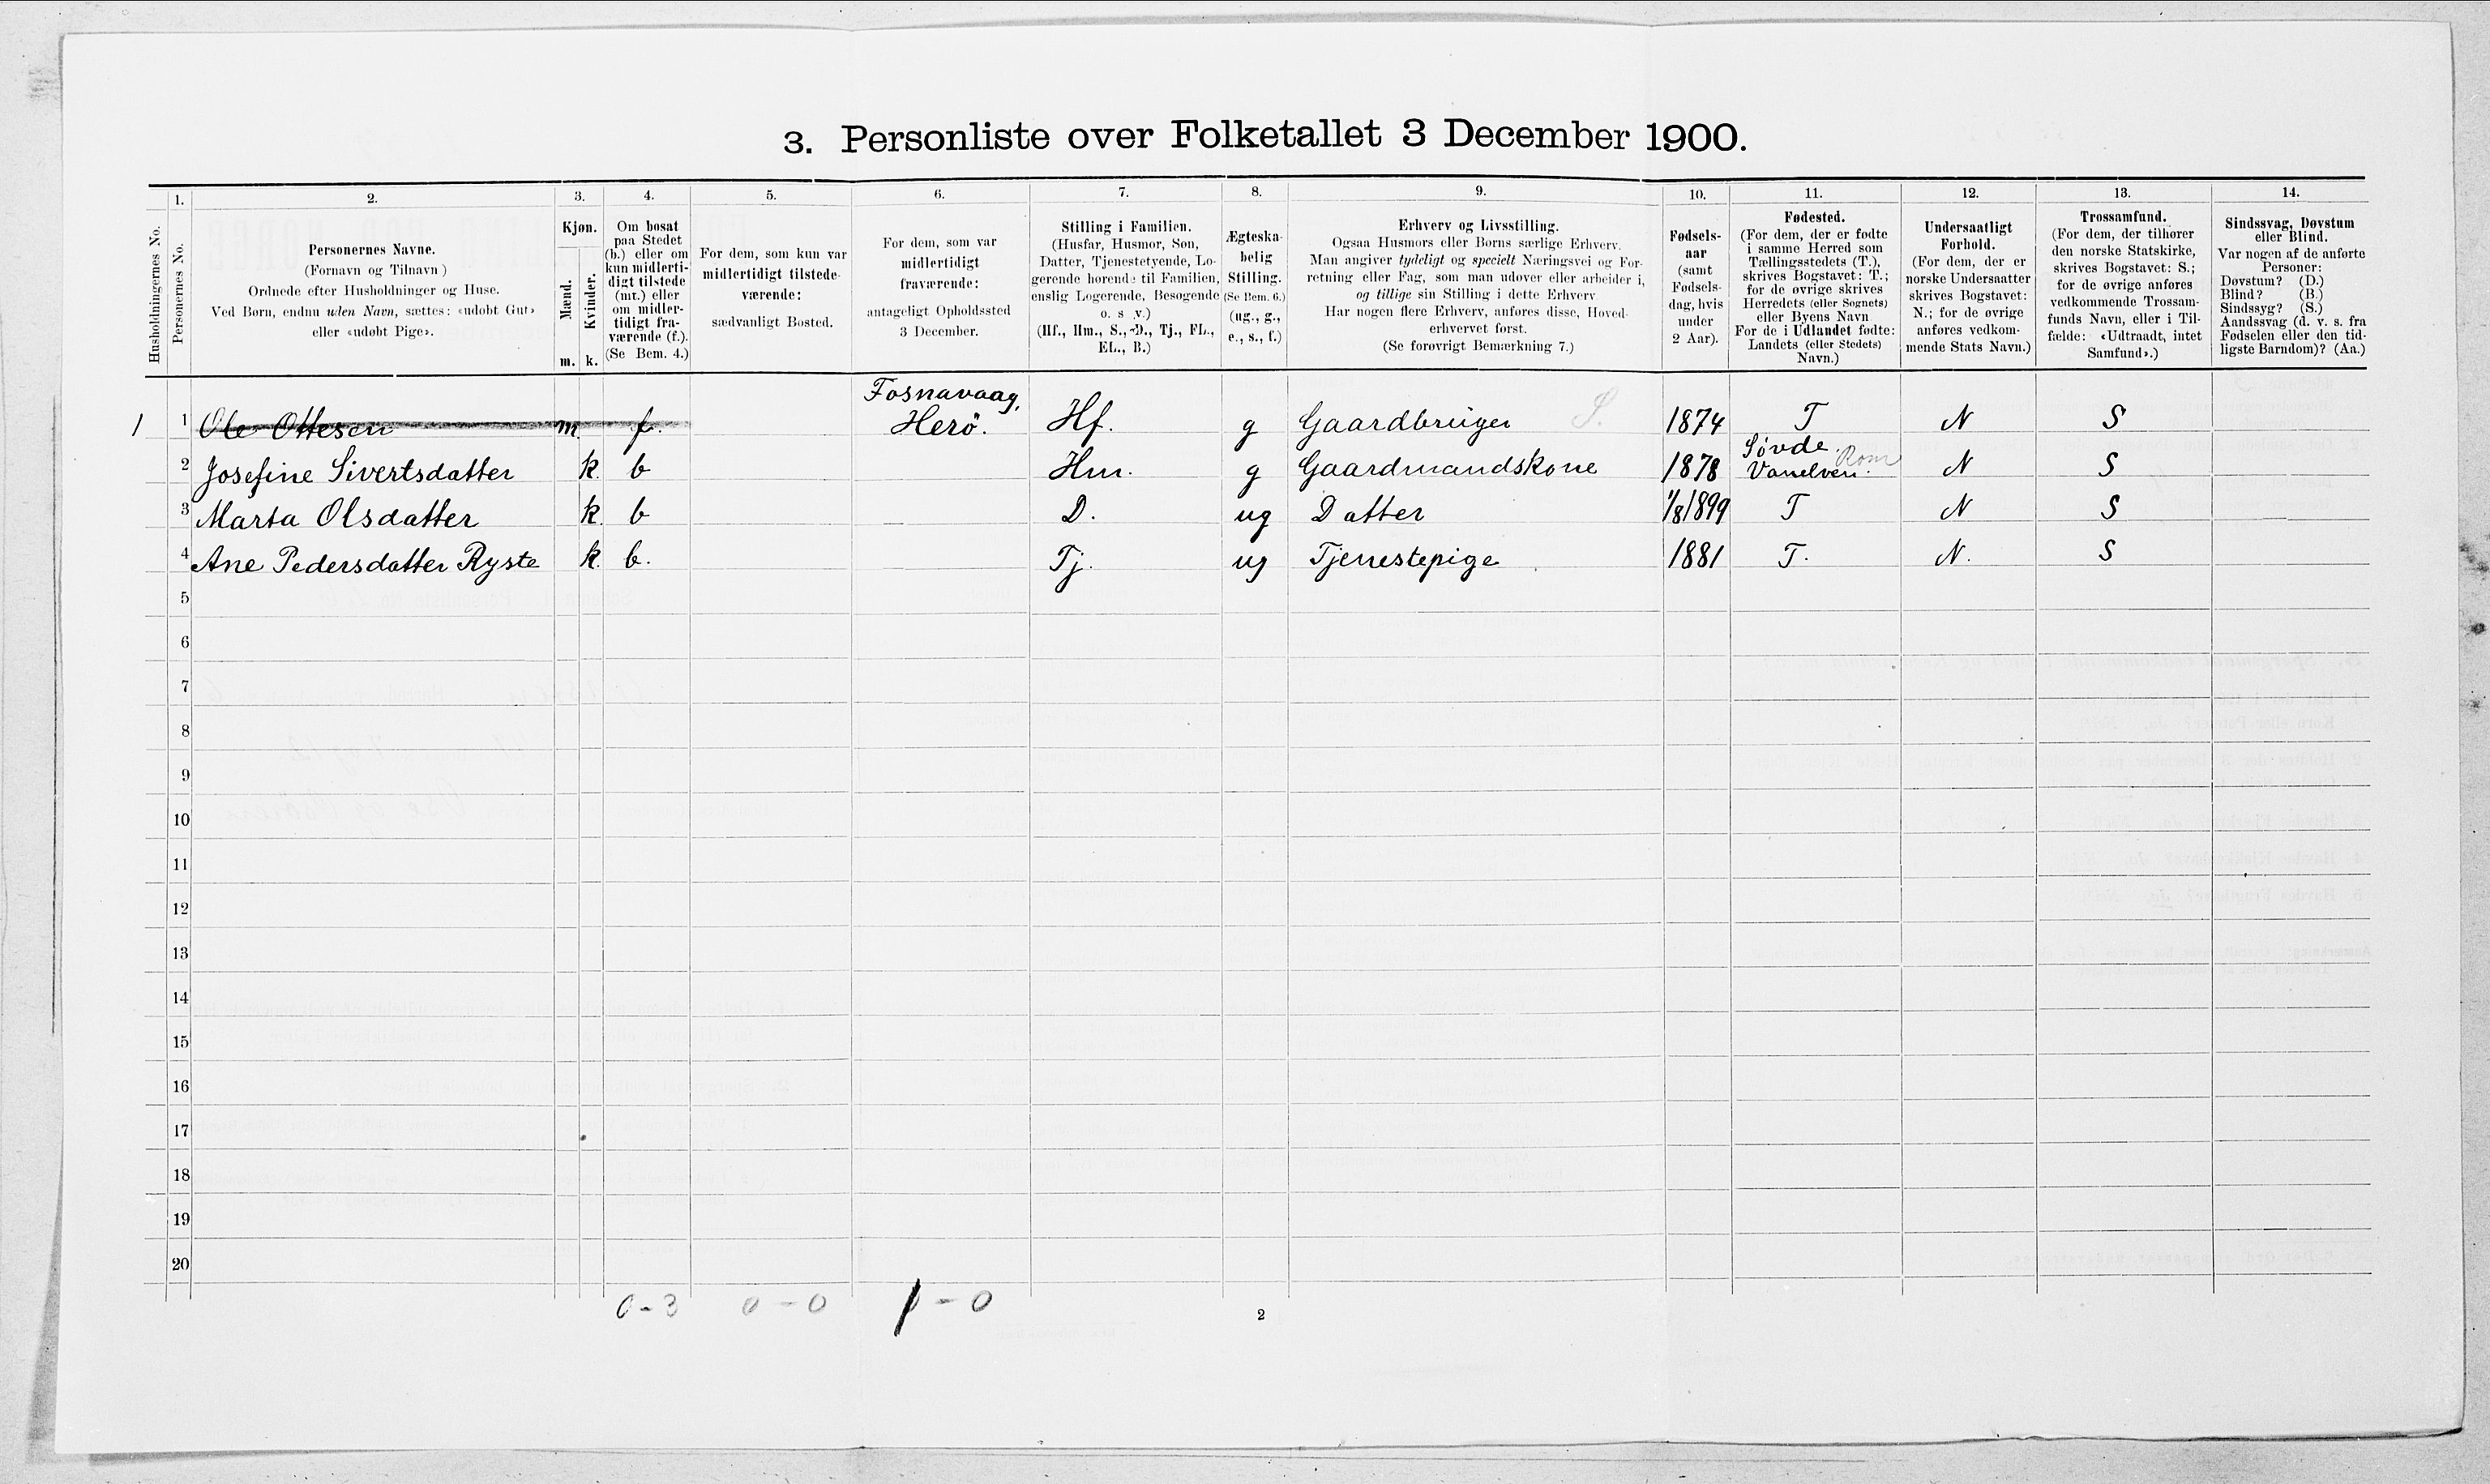 3. Personliste over Folketallet 3 December 1900.
1. 2. 3. 4. 5. 6. 7. 8. 9. 10. 11. 12. 13. 14.
Husholdningernes No.
Personernes No.
Personernes Navne.
(Fornavn og Tilnavn)
Ordnede efter Husholdninger og Huse.
Ved Børn, endnu uden Navn, sættes: «udøbt Gut»
eller «udøbt Pige».
Kjøn.
Mænd.
Kvinder.
m. k.
Om bosat
paa Stedet
(b.) eller om
kun midlerti-
digt tilstede
(mt.) eller
om midler-
tidigt fra-
værende (f.).
(Se Bem. 4.)
For dem, som kun var
midlertidigt tilstede-
værende:
sædvanligt Bosted.
For dem, som var
midlertidigt
fraværende:
antageligt Opholdssted
3 December.
Stilling i Familien.
(Husfar, Husmor, Søn,
Datter, Tjenestetyende, Lo-
gerende hørende til Familien,
enslig Logerende, Besøgende
o. s. v.)
(Hf., Hm., S., D., Tj., FL.,
EL., B.)
Ægteska-
belig
Stilling.
(Se Bem. 6.)
(ug., g.,
e., s., f.)
Erhverv og Livsstilling.
Ogsaa Husmors eller Børns særlige Erhverv.
Man angiver tydeligt og specielt Næringsvei og For-
retning eller Fag, som man udøver eller arbeider i,
og tillige sin Stilling i dette Erhverv.
Har nogen flere Erhverv, anføres disse, Hoved-
erhvervet først.
(Se forøvrigt Bemærkning 7.)
Fødsels-
aar
(samt
Fødsels-
dag, hvis
under
2 Aar).
Fødested.
(For dem, der er fødte
i samme Herred som
Tællingsstedets (T.),
skrives Bogstavet: T.;
for de øvrige skrives
Herredets (eller Sognets)
eller Byens Navn
For de i Udlandet fødte:
Landets (eller Stedets)
Navn.)
Undersaatligt
Forhold.
(For dem, der er
norske Undersaatter
skrives Bogstavet:
N.; for de øvrige
anføres vedkom-
mende Stats Navn.)
Trossamfund.
(For dem, der tilhører
den norske Statskirke,
skrives Bogstavet: S.;
for de øvrige anføres
vedkommende Trossam-
funds Navn, eller i Til-
fælde: «Udtraadt, intet
Samfund».)
Sindssvag, Døvstum
eller Blind.
Var nogen af de anførte
Personer:
Døvstum? (D.)
Blind? (B.)
Sindssyg? (S.)
Aandssvag (d. v. s. fra
Fødselen eller den tid-
ligste Barndom)? (Aa.)
1 1 Ole Ottesen m. f. Fosnavaag, Herö. Hf. g Gaardbruger S. 1874 T N S
2 Josefine Sivertsdatter k. b Hm. g Gaardmandskone 1878 Søvde Vanelven. Rom N S
3 Marta Olsdatter k. b D. ug Datter 1/8 1899 T N S
4 Ane Pedersdatter Ryste k. b. Tj. ug Tjenestepige 1881 T. N. S
5
6
7
8
9
10
11
12
13
14
15
16
17
18
19
20
0 - 3 0 - 0 1 - 0
2